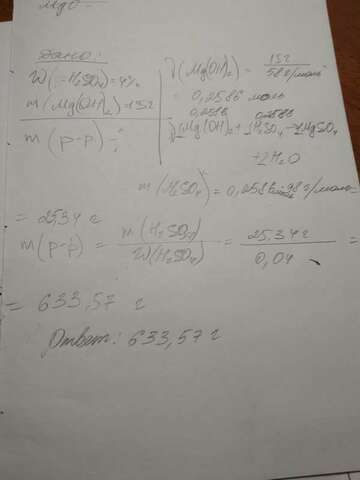 MgO =
Дано:
W(H₂SO₄)=4%
m(Mg(OH)₂)=15г
m(р-р)-?
ν(Mg(OH)₂) = 15г / 58г/моль
= 0,2586 моль
0,2586 0,2586
Mg(OH)₂ + H₂SO₄ → MgSO₄
+2H₂O
m(H₂SO₄) = 0,2586 · 98 г/моль =
= 25,34 г
m(р-р) = m(H₂SO₄) / W(H₂SO₄) = 25,34г / 0,04 =
= 633,57 г
Ответ: 633,57 г